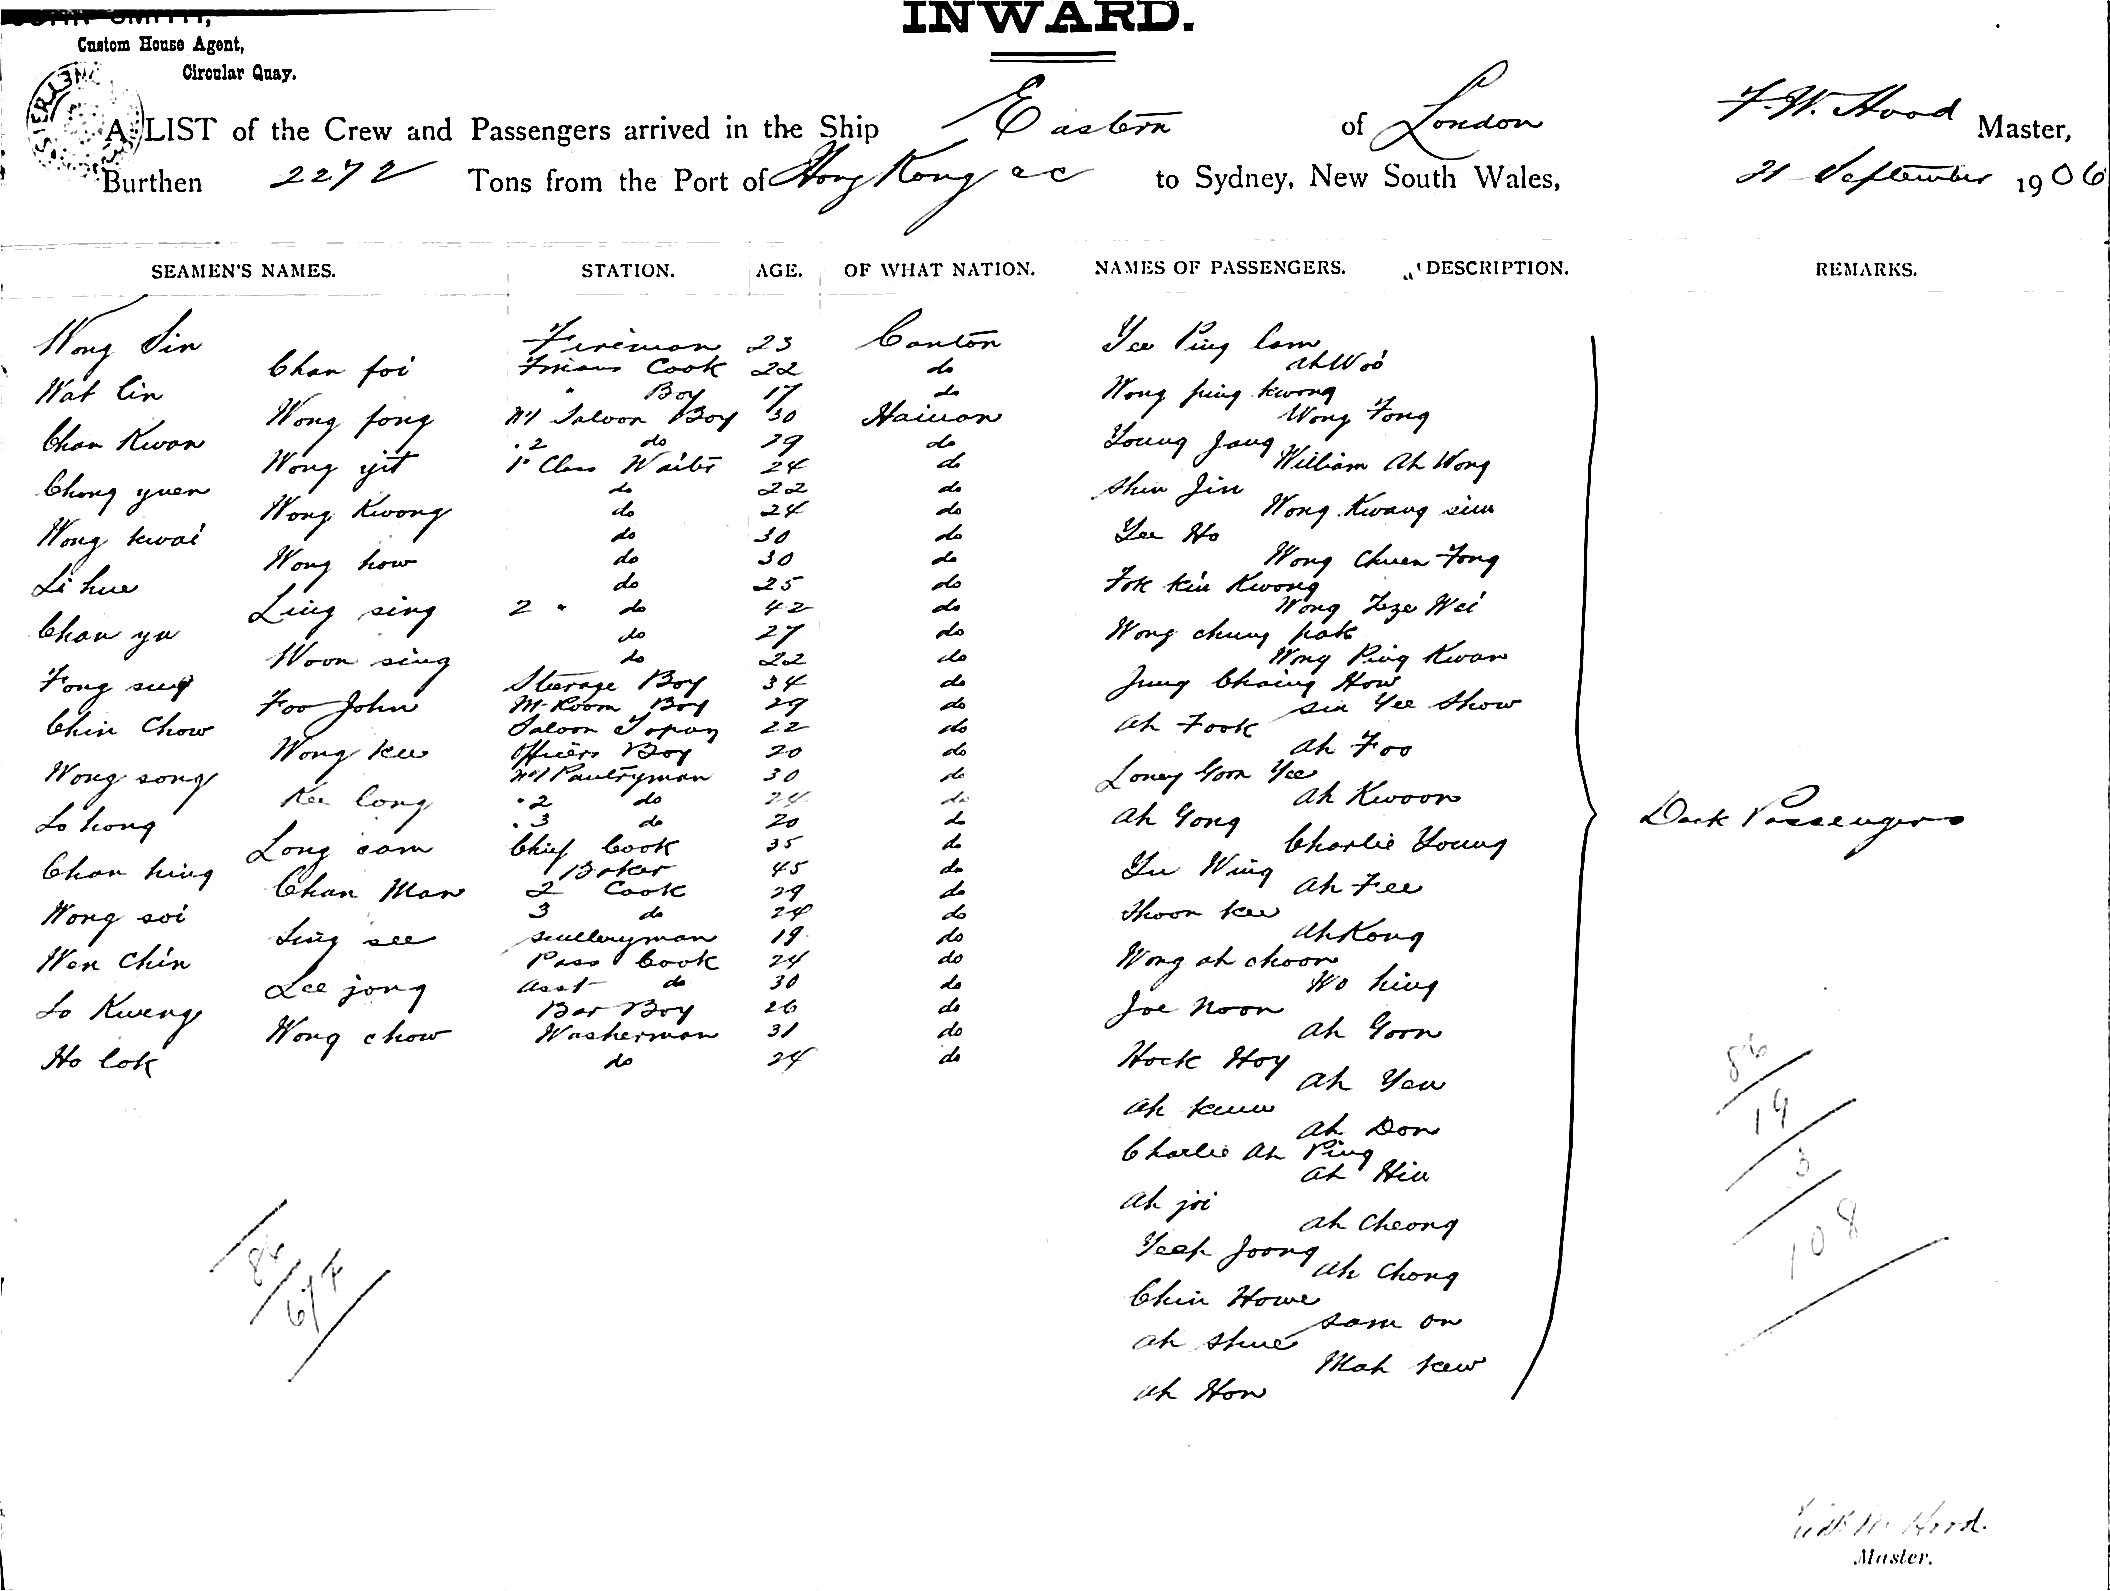 JOHN SMITH,
INWARD.
Custom House Agent,
Circular Quay.
A LIST of the Crew and Passengers arrived in the Ship Eastern of London F. W. Hood Master,
Burthen 2272 Tons from the Port of Hong Kong to Sydney, New South Wales, 21 September 1906
SEAMEN'S NAMES. STATION. AGE. OF WHAT NATION. NAMES OF PASSENGERS. DESCRIPTION. REMARKS.
Wong Sin Fireman 23 Canton Yee Ping Lam
Chan foi Cook 22 do Ah Woo
Wat lin " Boy 17 do Wong ping kwong
Wong fong No 1 Saloon Boy 30 Hainan Wong Fong
Chan Kwan . 2 do 29 do Young Jang
Wong yit 1st Class Waiter 24 do William Ah Wong
Chong yuen do 22 do Shin Jin
Wong Kwong do 24 do Wong Kwang sim
Wong kwai do 30 do Yee Ho
Wong how do 30 do Wong Chuen Fong
Li hue do 25 do Fok kin Kwong
Ling sing 2 " do 42 do Wong Tze Wei
Chan yu do 27 do Wong chung pak
Woon sing do 22 do Wong Ping Kwan
Fong sup Steerage Boy 34 do Jung Chaing How
Foo John M. Room Boy 29 do Sin Yee Show
Chin Chow Saloon Topay 22 do Ah Fook
Wong kee Officers Boy 20 do Ah Foo
Wong song No 1 Pantryman 30 do Loney Goon Yee
Kee long . 2 do 24 do Ah Kwoon
Lo hong . 3 do 20 do Ah Gong
Long sam Chief Cook 35 do Charlie Young
Chan hing Baker 45 do Yu Wing
Chan Man 2 Cook 29 do Ah Fee
Wong soi 3 do 24 do Thoon kee
Ling see Sculleryman 19 do Ah Kong
Wen Chin Pass Cook 24 do Wong ah choon
Lee jong Asst do 30 do Wo hing
Lo Kweng Bar Boy 26 do Joe Noon
Wong chow Washerman 31 do Ah Goon
Ho lok do 24 do Hock Hoy
Ah Yew
Ah
Ah Don
Charlie Ah Ping
Ah Hin
Ah joi
Ah Cheong
Yeep Joong
Ah Chong
Chin Howe
Sam on
Ah Shue
Mah kew
Ah Hon
Deck Passengers
86
19
3
108
86
67
Hood.
Master.